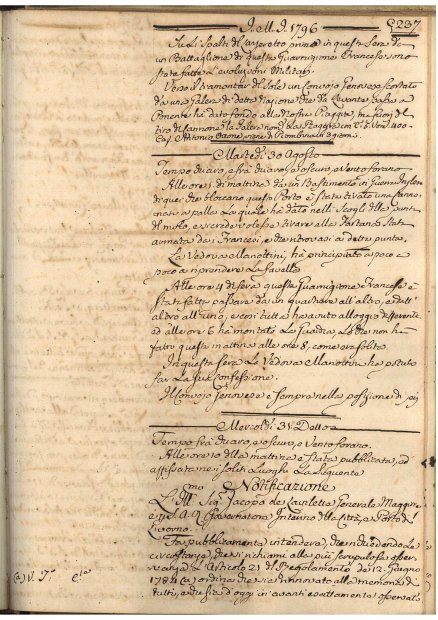 I.M.I. 1796 237
Su li Spalti del Casserotto prima in questa Sera da
un Battaglione di questa Guarnigione Francese sono
state fatte l'evoluzioni Militari.
Verso il tramontar del Sole un Convojo Genovese scortato
da una Galera di detta Nazione che da Levante passa a
Ponente ha dato fondo alla nostra Piaggia, fuori del
tiro di Cannone la Galera
Cap. Antonio da Piombino in giorni
Martedì 30 Agosto
Tempo duaro, e frà duaro, e oscuro, e Vento forano
Alle ore di mattina da un Bastimento in Guerra Inglese
di quei che bloccano questo Porto è stata tirata una Canno-
nata a palla la quale ha dato nelli Scogli della punta
del molo, e si crede volesse tirare alla Tartana Stata
armata da i Francesi, e che ritrovasi a detta punta.
La Vedova Manottini, ha principiato a poco a
poco a riprendere la favella
Alle ore 4 di sera questa Guarnigione Francese è
Stata fatta passare da un quartiere all'altro, e dall'
altro all'uno, e così tutta ha avuto alloggio differente
ed alle ore 6 ha montato la Guardia, che non ha
fatto questa mattina alle ore 8, come era solita.
In questa Sera la Vedova Manottini ha potuto
far la sua Confessione.
Il Convojo Genovese è sempre nella posizione di jeri
Mercoldì 31 Detto
Tempo frà duaro, e oscuro, e Vento forano.
Alle ore 10 della mattina è stata pubblicata, ed
affissata nei soliti Luoghi la seguente
Notificazione
L'Ill.mo Sig. Jacopo de Lavilette Generale Maggiore
di S. A. R. Governatore Interino della Città, e Porto di
Livorno.
Fa pubblicamente intendere, che richiedendo le
circostanze, che si richiami alla più scrupolosa osser-
vanza l'Articolo 21 del Regolamento de 12. Giugno
1784 (a) ordina che sia rinnovato alla memoria di
tutti, e che sia d'oggi in avanti esattamente osservato
(a) V.